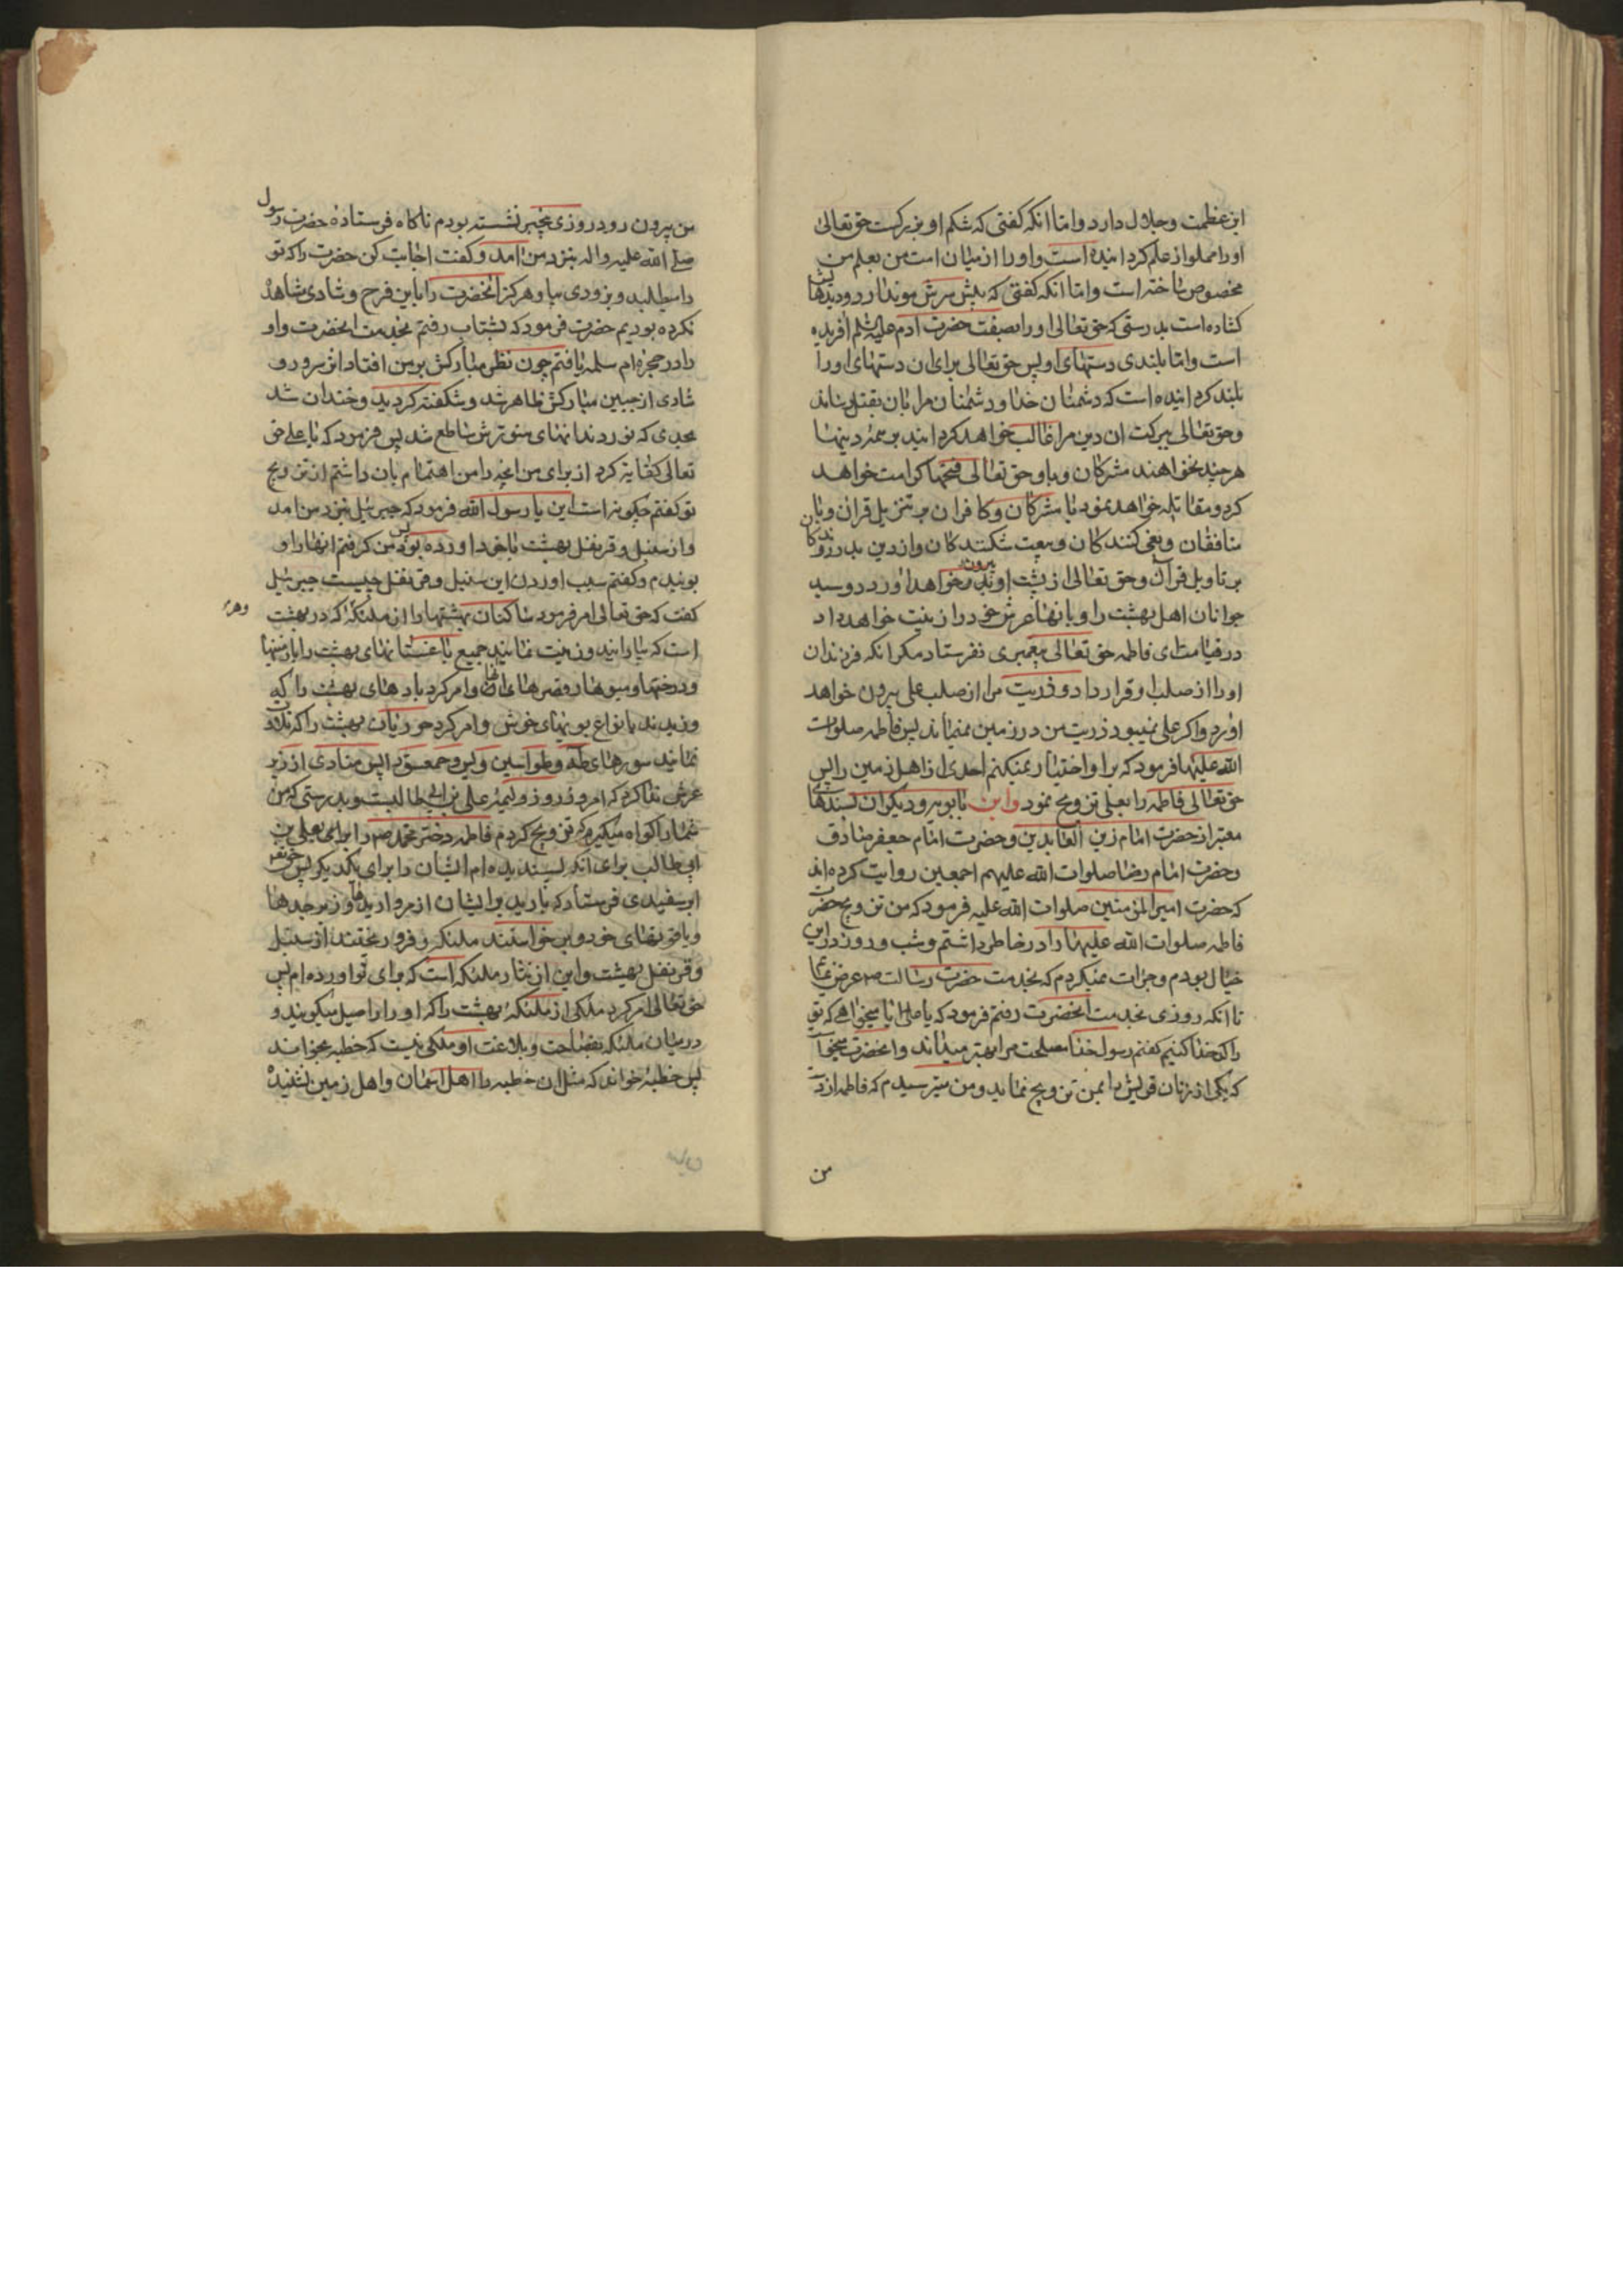 این عظمت و جلال دارد و اما انکه کفتی که شکم او بزرکست حق تعالی
او را مملو از علم کردانیده است و او را از میان امت من بعلم من
مخصوص ساخته است و اما انکه کفتی که پیش سرش مو ندارد و دیدهایش
کشاده است بدرستی که حق تعالی او را بصفت حضرت آدم علیه السلم آفریده
است و اما بلندی دستهای او پس حق تعالی برای ان دستهای او را
بلند کردانیده است که دشمنان خدا و دشمنان مرا بان بقتل رساند
و حق تعالی ببرکت ان دین مرا غالب خواهد کردانید بر همه دینها
هر چند نخواهند مشرکان و باو حق تعالی فتحها کرامت خواهد
کرد و مقاتله خواهد نمود با مشرکان و کافران بر تنزیل قران و با
منافقان و بغی کنندکان و بیعت شکنندکان و از دین بدر روندکان
بر تاویل قرآن و حق تعالی از پشت او بیرون خواهد اورد دو سید
جوانان اهل بهشت را و بانها عرش خود را زینت خواهد داد
در قیامت ای فاطمه حق تعالی پیغمبری نفرستاد مکر انکه فرزندان
او را از صلب او قرار داد و ذریت مرا از صلب علی بیرون خواهد
اورد و اکر علی نمیبود ذریت من در زمین نمیماند پس فاطمه صلوات
الله علیها فرمود که بر او اختیار نمیکنم احدی از اهل زمین را پس
حق تعالی فاطمه را بعلی تزویج نمود و ابن بابویه و دیکران بسندهای
معتبر از حضرت امام زین العابدین و حضرت امام جعفر صادق
و حضرت امام رضا صلوات الله علیهم اجمعین روایت کرده اند
که حضرت امیر المؤمنین صلوات الله علیه فرمود که من تزویج حضرت
فاطمه صلوات الله علیها را در خاطر داشتم و شب و روز در این
خیال بودم و جرات نمیکردم که بخدمت حضرت رسالت ص عرض نمایم
تا انکه روزی بخدمت انحضرت رفتم فرمود که یا علی ایا میخواهی که تو
را کدخدا کنیم کفتم رسول خدا مصلحت مرا بهتر میداند و انحضرت میخواست
که یکی از زنان قریش را بمن تزویج نماید و من میترسیدم که فاطمه از دست
من
من بیرون رود روزی بیخبر نشسته بودم ناکاه فرستاده حضرت رسول
صلی الله علیه و اله بنزد من امد و کفت اجابت کن حضرت را که تو
را میطلبد و بزودی بیا و هرکز انحضرت را باین فرح و شادی مشاهده
نکرده بودیم حضرت فرمود که بشتاب رفتم بخدمت انحضرت و او
را در حجره ام سلمه یافتم چون نظر مبارکش بر من افتاد اثر سرور و
شادی از جبین مبارکش ظاهر شد و شکفته کردید و خندان شد
بحدی که نور دندانهای منورش ساطع شد پس فرمود که یا علی حق
تعالی کفایت کرد از برای من انچه را من اهتمام بان داشتم از تزویج
تو کفتم چکونه است این یا رسول الله فرمود که جبرئیل بنزد من امد
و از سنبل و قرنفل بهشت با خود اورده بود پس من کرفتم انها را و
بوئیدم و کفتم سبب اوردن این سنبل و قرنفل چیست جبرئیل
کفت که حق تعالی امر فرمود ساکنان بهشتها را از ملئکه که در بهشت
است که بیارایند و زینت نمایند جمیع باغستانهای بهشت را با زمینها
و درختها و میوها و قصرهای انها و امر کرد بادهای بهشت را که
وزیدند بانواع بویهای خوش و امر کرد حوریان بهشت را که تلاوت
نمایند سورهای طه و طواسین و یس و حمعسق را پس منادی از زیر
عرش ندا کرد که امروز روز ولیمه علی بن ابی طالبست و بدرستی که من
شما را کواه میکیرم که تزویج کردم فاطمه دختر محمد ص را برای علی بن
ابی طالب برای انکه پسندیده ام ایشان را برای یکدیکر پس حق تعالی
ابر سفیدی فرستاد که بارید بر ایشان از مرواریدها و زبرجدها
و یاقوتهای خود و برخواستند ملئکه و فرو ریختند از سنبل
و قرنفل بهشت و این از نثار ملئکه است که برای تو اورده ام پس
حق تعالی امر کرد ملکی از ملئکهٔ بهشت را که او را راحیل میکویند و
در میان ملئکه بفصاحت و بلاغت او ملکی نیست که خطبه بخواند
پس خطبهٔ خواند که مثل ان خطبه را اهل اسمان و اهل زمین نشنیده